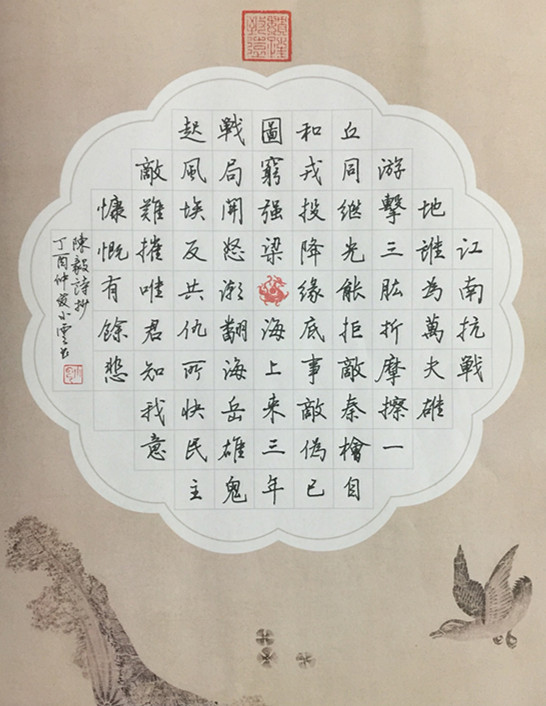 江南抗戰
地誰為萬夫雄
游擊三肱折摩擦一
丘同继光能拒敵秦檜自
和戎投降緣底事敵偽已
圖窮强梁海上來三年
戰局開怒潮翻海岳雄鬼
起風埃反共仇所快民主
敵難摧唯君知我意
慷慨有餘悲
陳毅詩抄
丁酉仲夏小雲书